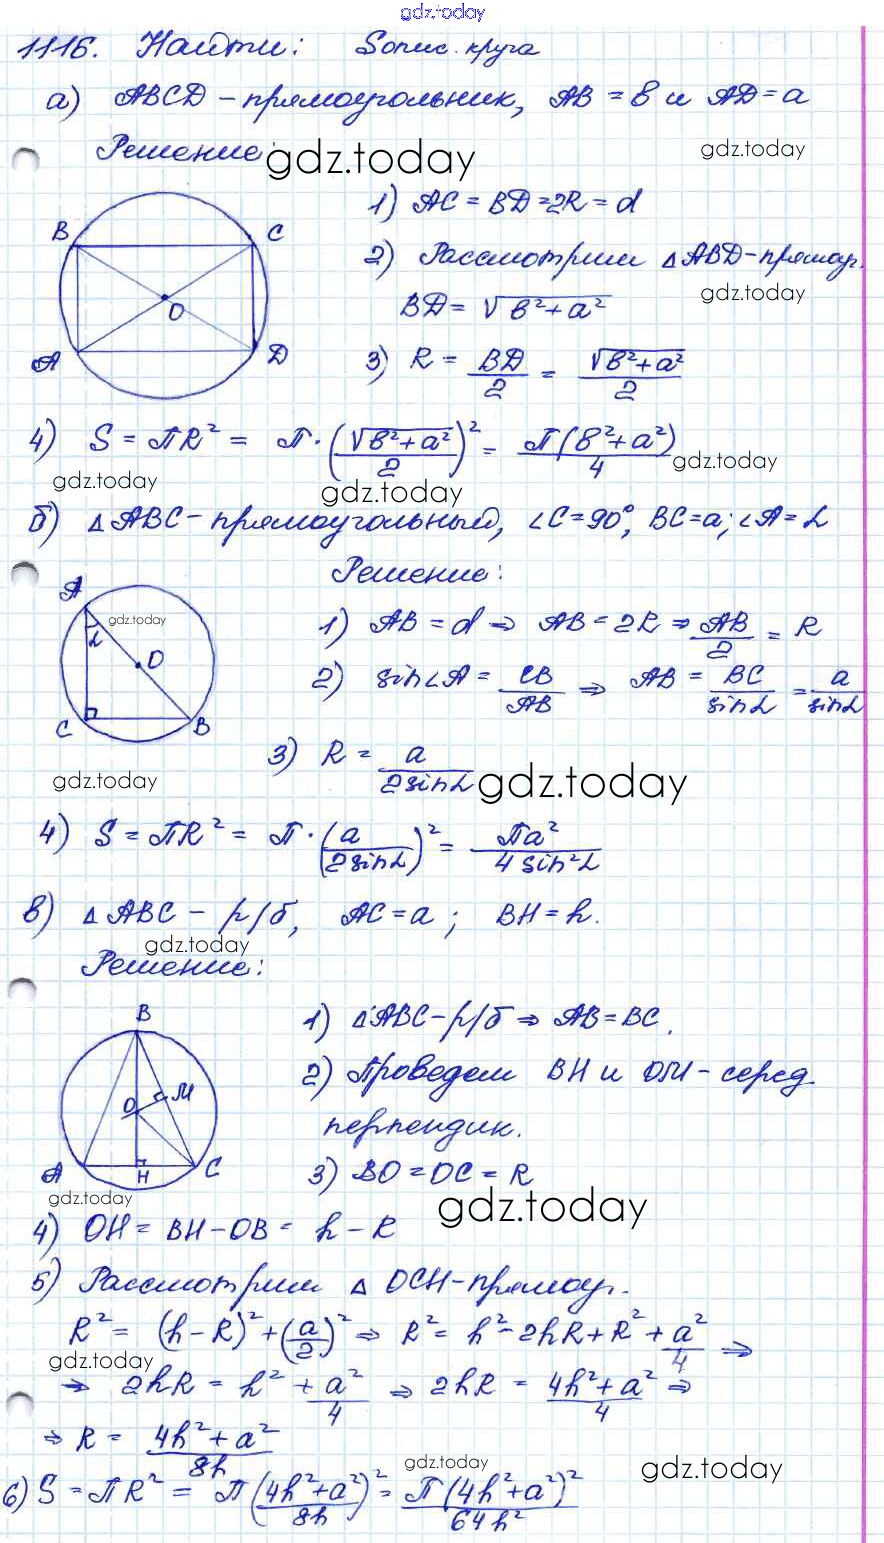 gdz.today
1116. Найти: Sопис. круга
а) ABCD – прямоугольник, AB = в и AD = a
Решение:
gdz.today
gdz.today
B
C
O
A
D
1) AC = BD = 2R = d
2) Рассмотрим △ABD – прямоуг.
BD = √(в² + a²)
gdz.today
3) R = BD/2 = √(в² + a²)/2
4) S = πR² = π · (√(в² + a²)/2)² = π(в² + a²)/4
gdz.today
gdz.today
gdz.today
б) △ABC – прямоугольный, ∠C = 90°, BC = a; ∠A = α
Решение:
A
gdz.today
α
O
C
B
1) AB = d ⇒ AB = 2R ⇒ AB/2 = R
2) sin∠A = CB/AB ⇒ AB = BC/sinα = a/sinα
3) R = a/2sinα
gdz.today
gdz.today
4) S = πR² = π · (a/2sinα)² = πa²/4sin²α
в) △ABC – р/б, AC = a; BH = h.
gdz.today
Решение:
B
O
M
A
H
C
1) △ABC – р/б ⇒ AB = BC.
2) Проведем BH и OM – серед.
перпендик.
3) BO = OC = R
gdz.today
gdz.today
4) OH = BH – OB = h – R
5) Рассмотрим △ OCH – прямоуг.
R² = (h – R)² + (a/2)² ⇒ R² = h² – 2hR + R² + a²/4 ⇒
gdz.today
⇒ 2hR = h² + a²/4 ⇒ 2hR = 4h² + a²/4 ⇒
⇒ R = 4h² + a²/8h
gdz.today
gdz.today
6) S = πR² = π(4h² + a²/8h)² = π(4h² + a²)²/64h²